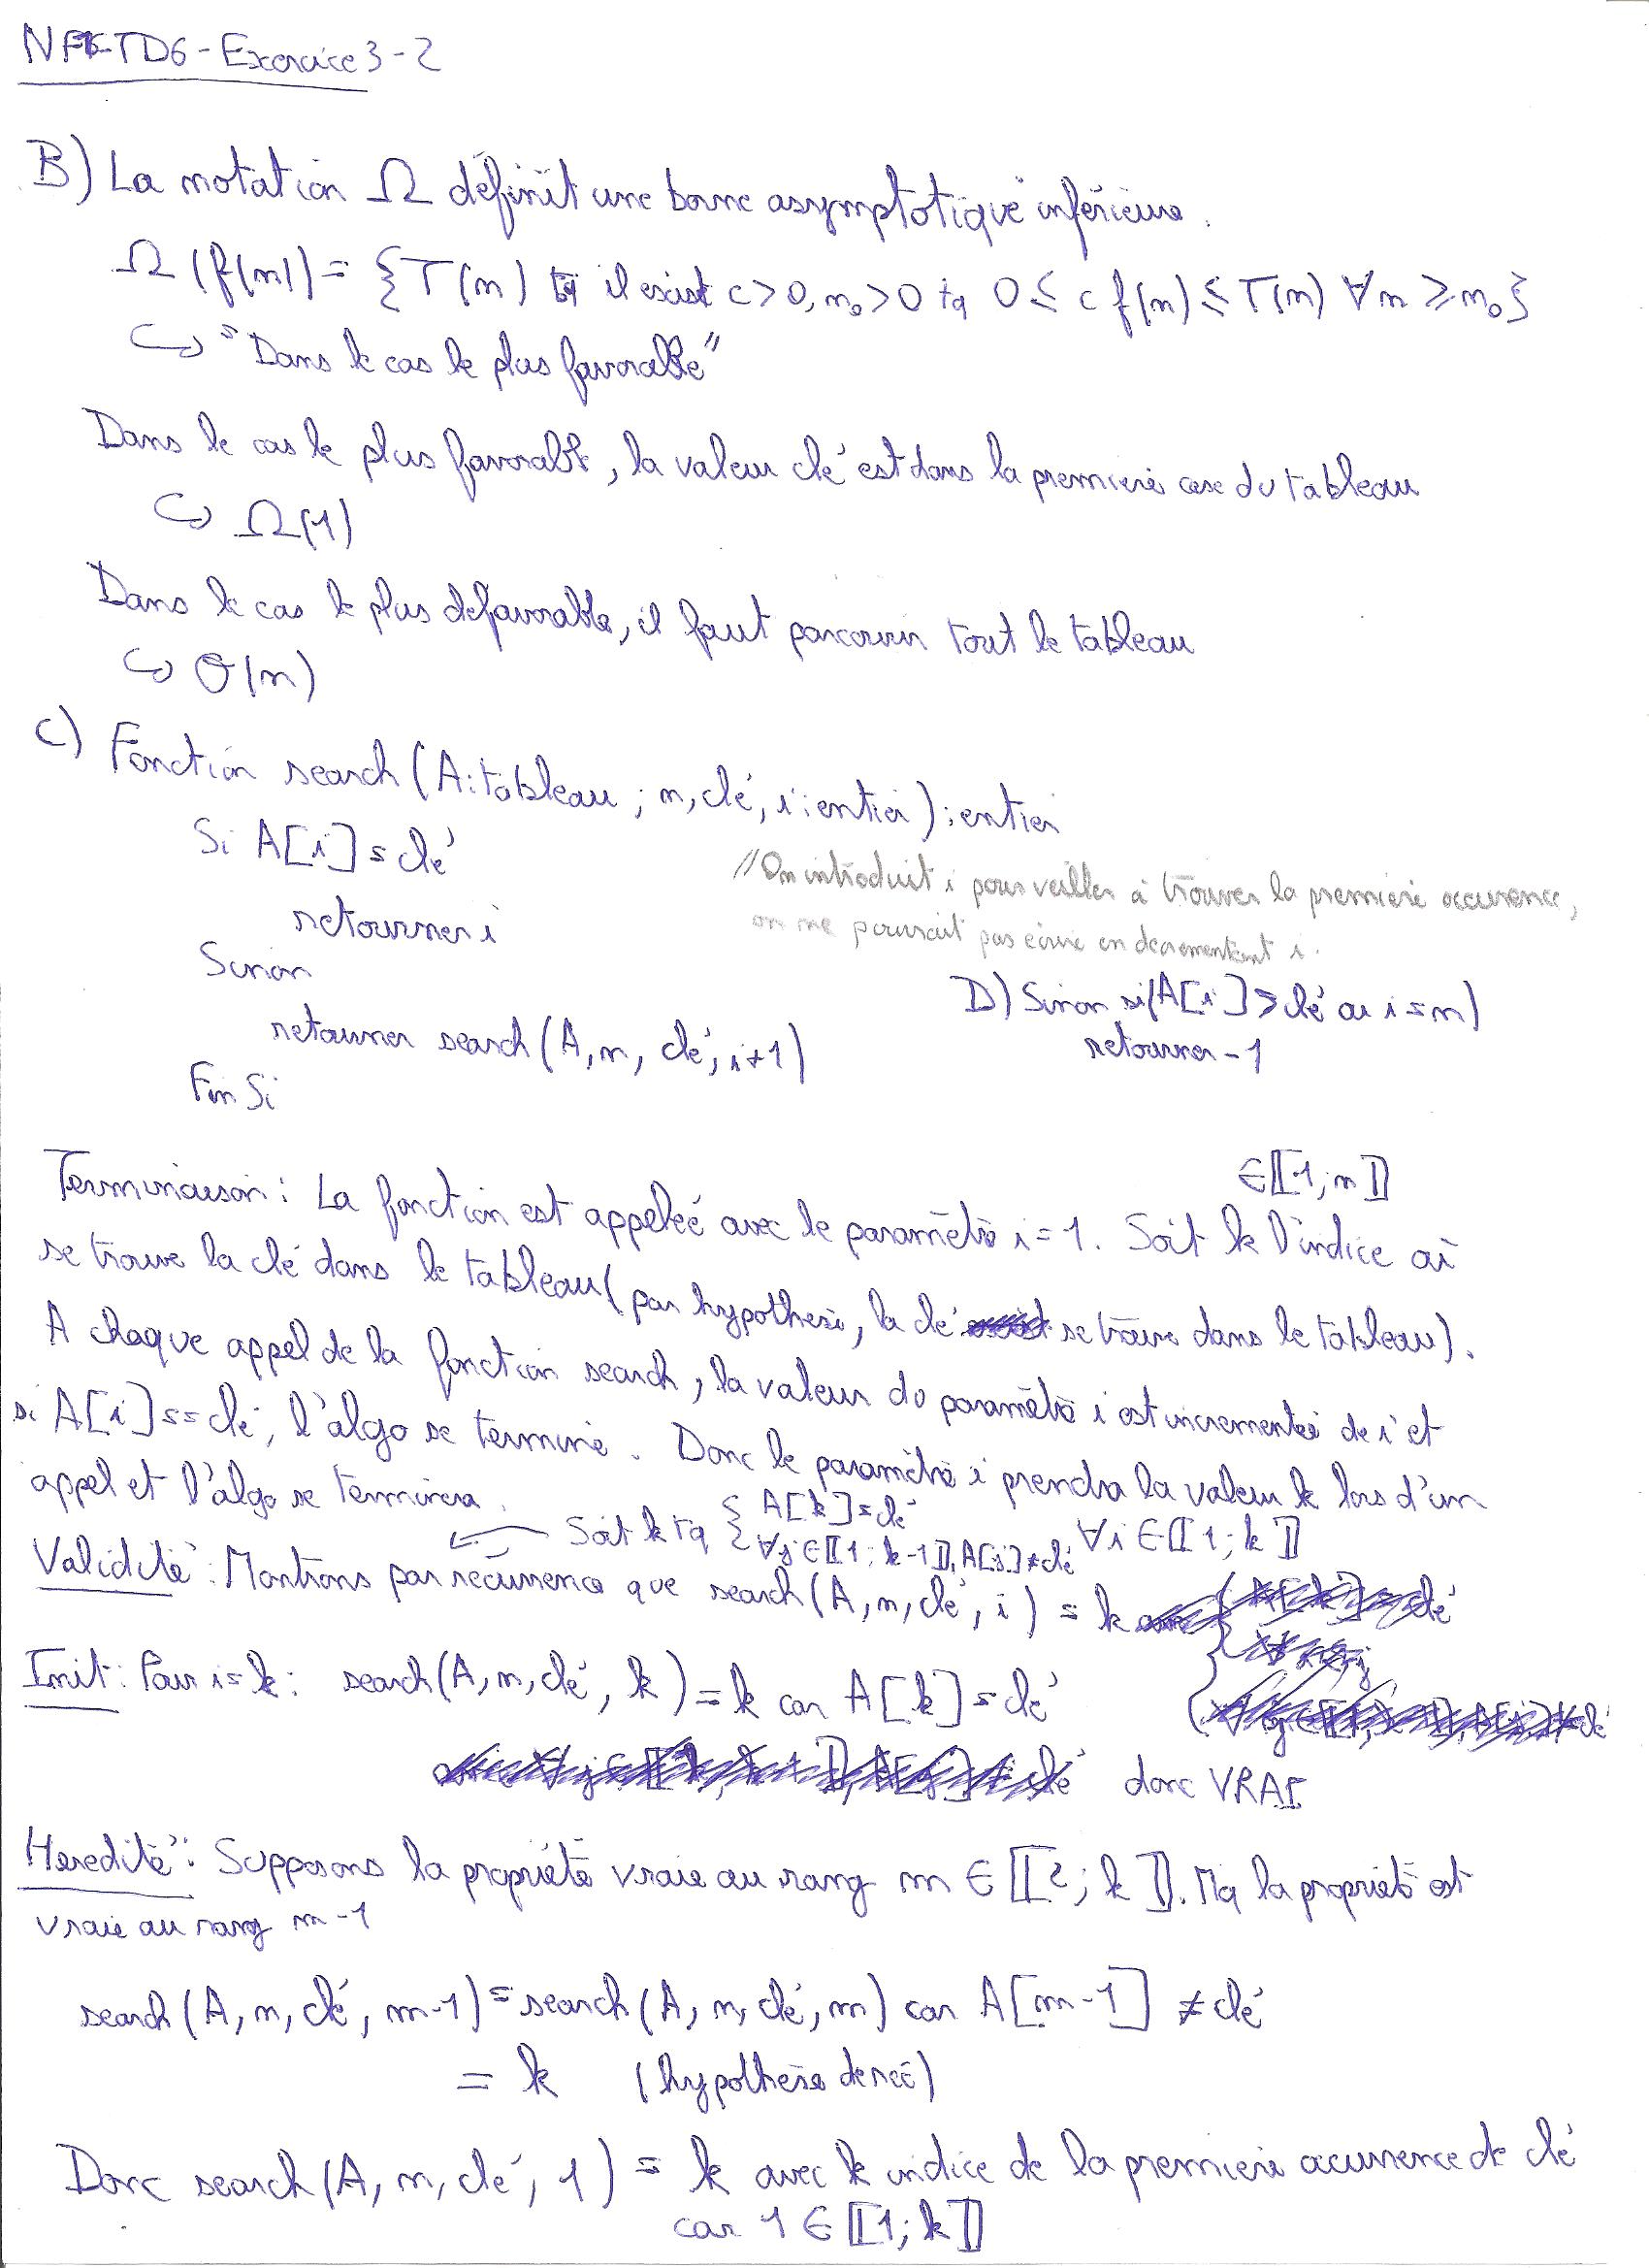 NF16-TD6-Exercice 3-2
B) La notation Ω définit une borne asymptotique inférieure.
Ω(f(n)) = {T(n) tq il exist c > 0, n₀ > 0 tq 0 ≤ c f(n) ≤ T(n) ∀n ≥ n₀}
↪ "Dans le cas le plus favorable"
Dans le cas le plus favorable, la valeur clé est dans la première case du tableau
↪ Ω(1)
Dans le cas le plus défavorable, il faut parcourir tout le tableau
↪ O(n)
C) Fonction search (A: tableau ; n, clé, i : entier) : entier
Si A[i] = clé
//On introduit i pour veiller à trouver la première occurence,
on ne pourrait pas écrire en decrementant i.
retourner i
Sinon
D) Sinon si (A[i] > clé ou i = n)
retourner -1
retourner search (A, n, clé, i+1)
Fin Si
Terminaison : La fonction est appelée avec le paramètre i = 1. Soit k l'indice où
∈ ⟦1; n⟧
se trouve la clé dans le tableau (par hypothèse, la clé se trouve dans le tableau).
A chaque appel de la fonction search, la valeur du paramètre i est incrémentée de 1 et
si A[i] == clé, l'algo se termine. Donc le paramètre i prendra la valeur k lors d'un
appel et l'algo se terminera.
Soit k tq { A[k] = clé
∀j ∈ ⟦1; k-1⟧, A[j] ≠ clé
∀i ∈ ⟦1; k⟧
Validité : Montrons par récurrence que search (A, n, clé, i) = k
Init : Pour i = k : search (A, n, clé, k) = k car A[k] = clé
donc VRAI
Heredité : Supposons la propriété vraie au rang m ∈ ⟦2; k⟧. Mq la propriété est
vraie au rang m-1
search (A, n, clé, m-1) = search (A, n, clé, m) car A[m-1] ≠ clé
= k (hypothèse de rec)
Donc search (A, n, clé, 1) = k avec k indice de la première occurrence de clé
car 1 ∈ ⟦1; k⟧